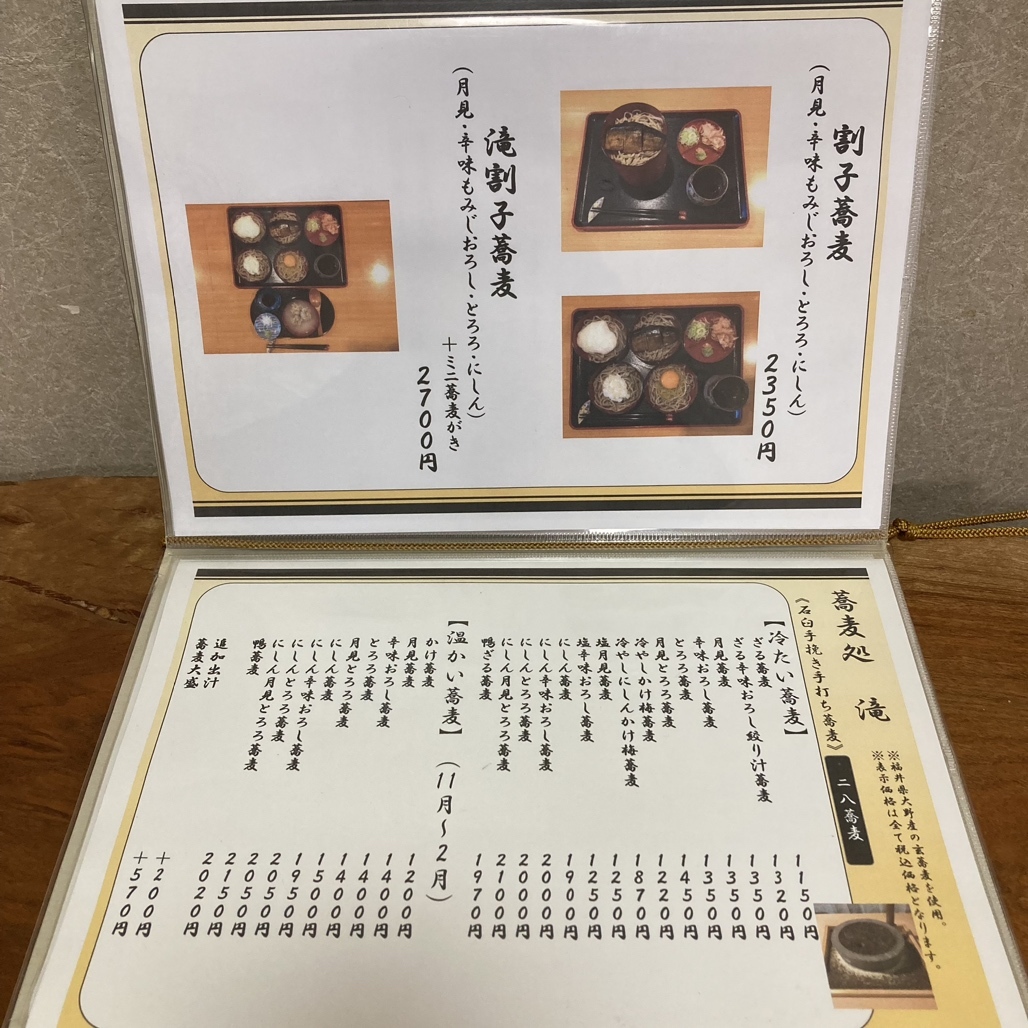 割子蕎麦
(月見・辛味もみじおろし・とろろ・にしん)
2350円
滝割子蕎麦
(月見・辛味もみじおろし・とろろ・にしん)
+ミニ蕎麦がき
2700円
蕎麦処 滝
《石臼手挽き手打ち蕎麦》
二八蕎麦
※福井県大野産の玄蕎麦を使用。
※表示価格は全て税込価格となります。
【冷たい蕎麦】
ざる蕎麦 1150円
ざる辛味おろし絞り汁蕎麦 1320円
月見蕎麦 1350円
辛味おろし蕎麦 1350円
とろろ蕎麦 1350円
月見とろろ蕎麦 1450円
冷やしかけ梅蕎麦 1220円
冷やしにしんかけ梅蕎麦 1870円
塩月見蕎麦 1250円
塩辛味おろし蕎麦 1250円
にしん蕎麦 1900円
にしん辛味おろし蕎麦 2000円
にしんとろろ蕎麦 2000円
にしん月見とろろ蕎麦 2100円
鴨ざる蕎麦 1970円
【温かい蕎麦】 (11月〜2月)
かけ蕎麦 1200円
月見蕎麦 1400円
辛味おろし蕎麦 1400円
とろろ蕎麦 1400円
月見とろろ蕎麦 1500円
にしん蕎麦 1950円
にしん辛味おろし蕎麦 2050円
にしんとろろ蕎麦 2050円
にしん月見とろろ蕎麦 2150円
鴨蕎麦 2020円
追加出汁 +200円
蕎麦大盛 +570円